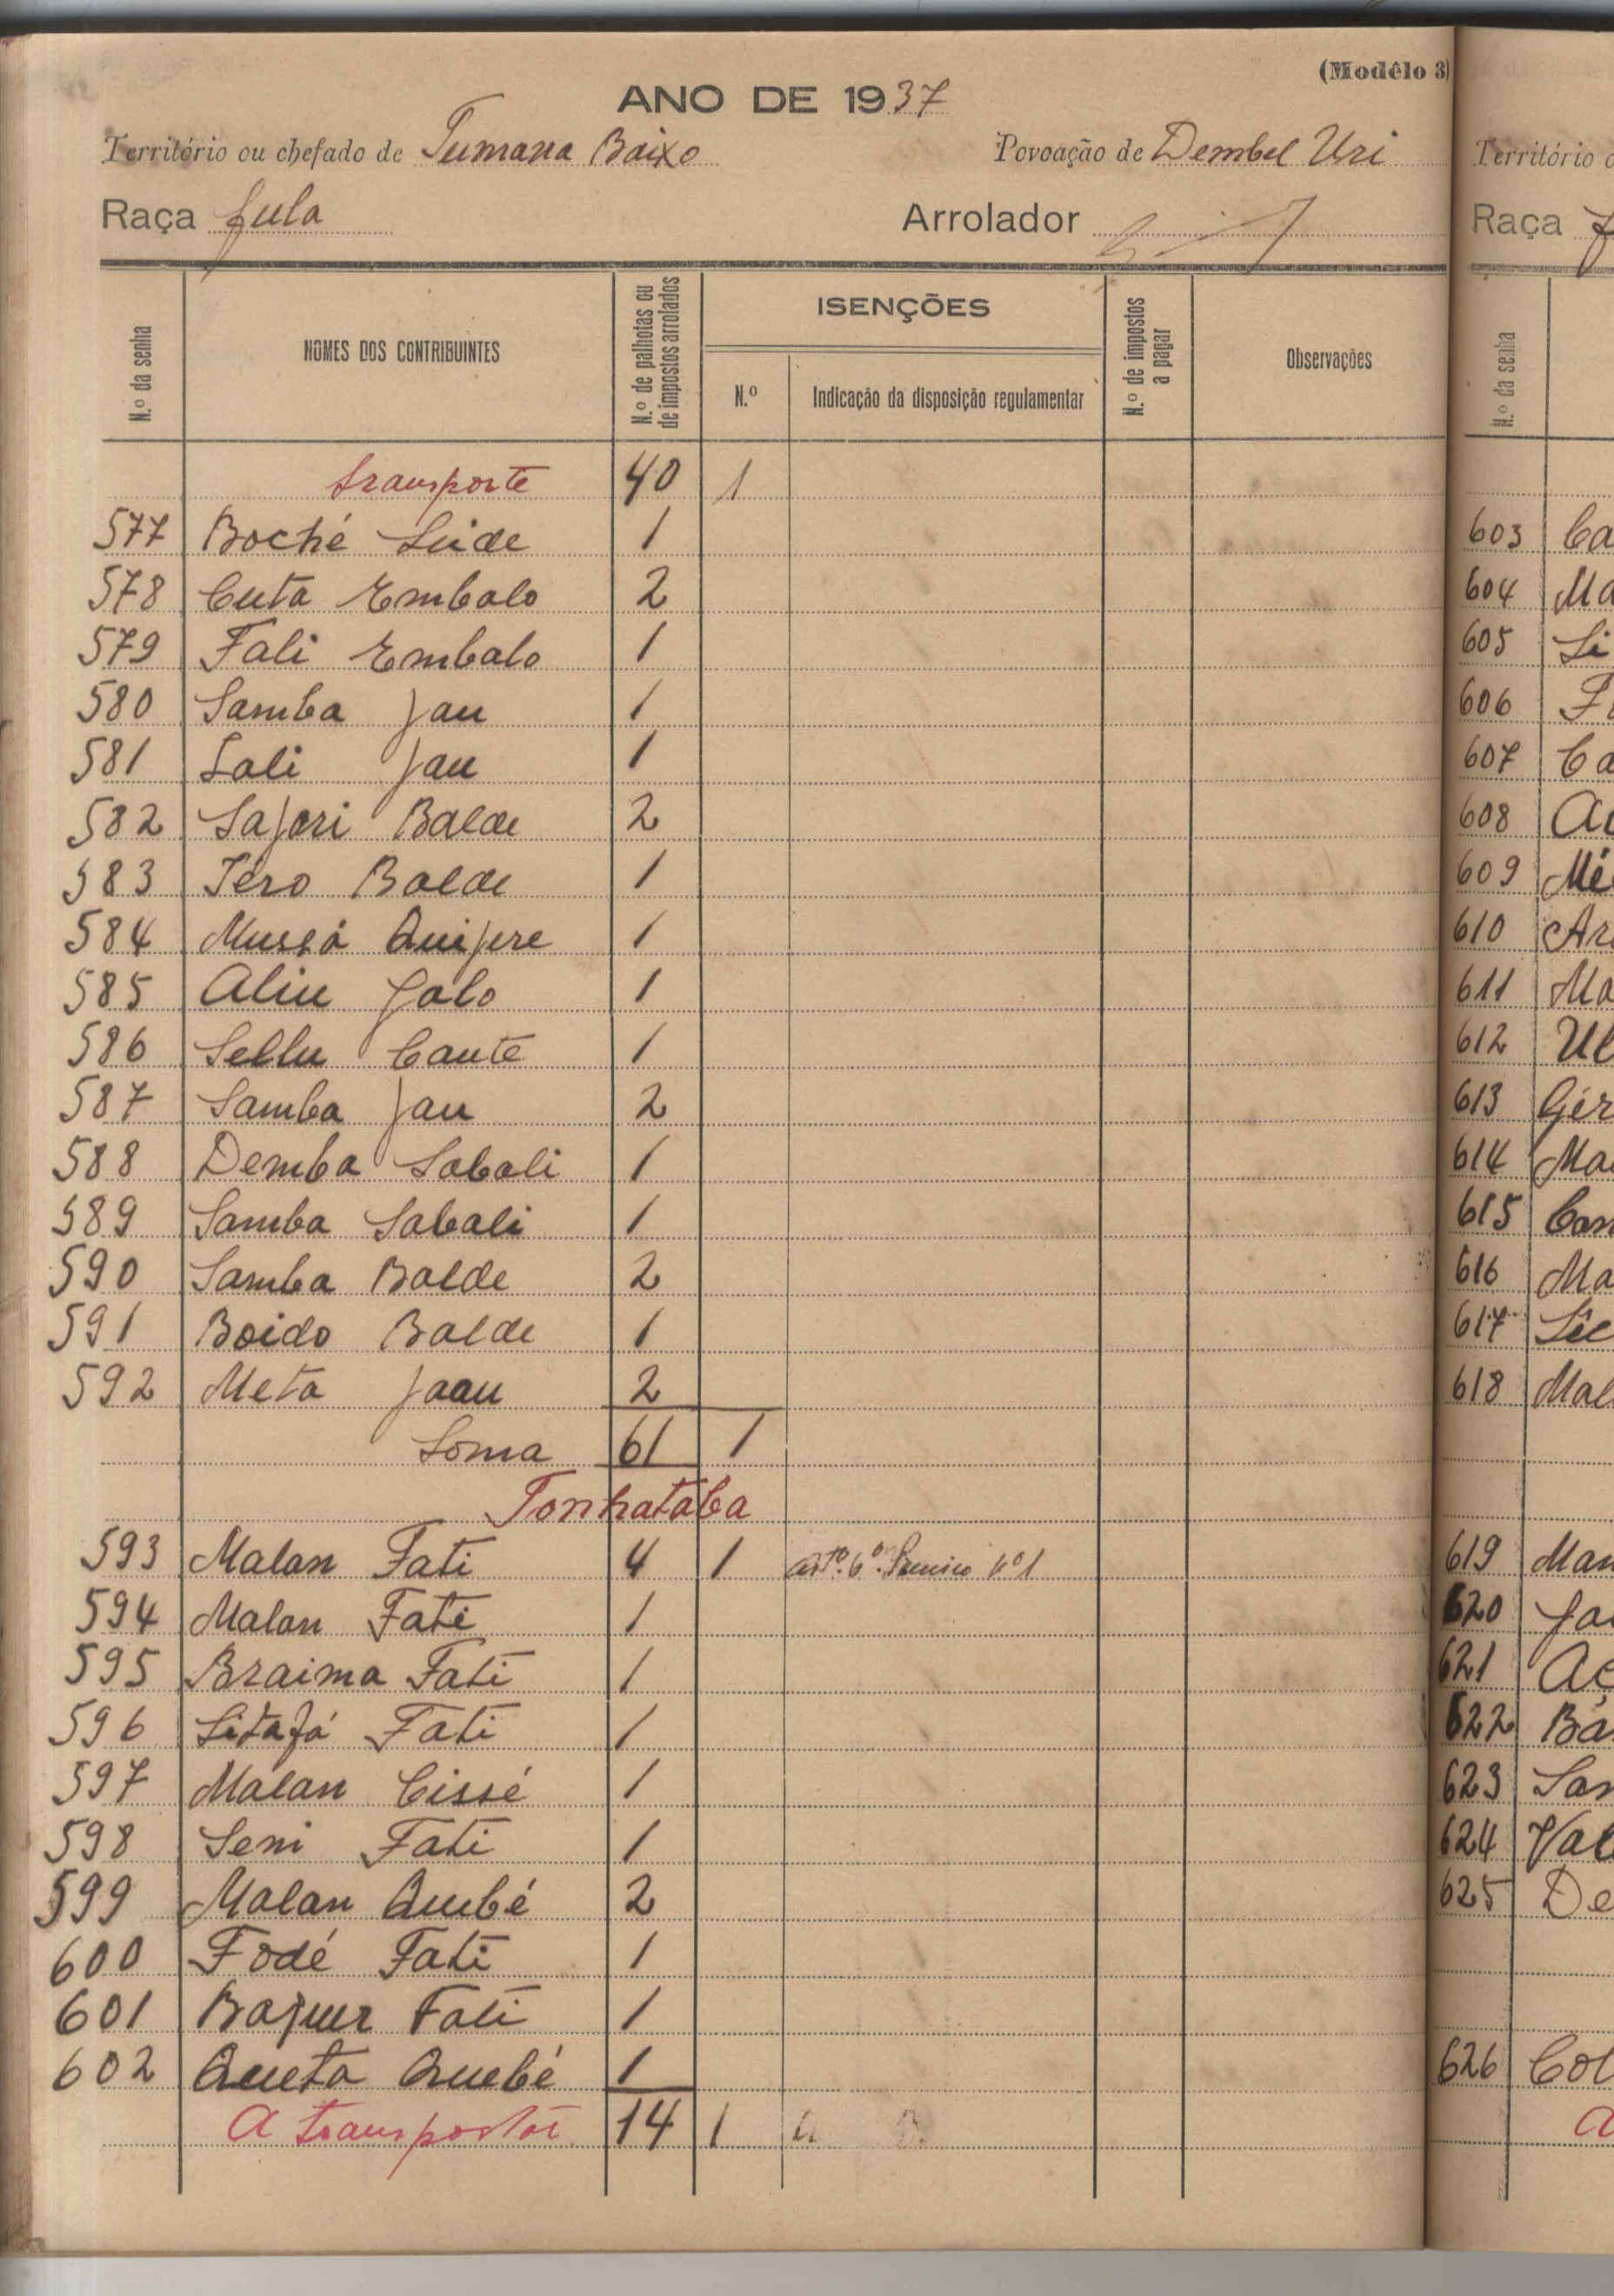 (Modêlo 3)
ANO DE 1937
Território ou chefado de Tumana Baixo Povoação de Dembel Uri
Raça fula Arrolador
N.º da senha NOMES DOS CONTRIBUINTES N.º de palhotas ou de impostos arrolados ISENÇÕES N.º Indicação da disposição regulamentar N.º de impostos a pagar Observações
transporte 40 1
577 Boché Seide 1
578 Cuta Embalo 2
579 Fali Embalo 1
580 Samba Jau 1
581 Sali Jau 1
582 Sajori Balde 2
583 Téro Balde 1
584 Mussá Quijere 1
585 Aliu Jalo 1
586 Sellu Cante 1
587 Samba Jau 2
588 Demba Sabali 1
589 Samba Sabali 1
590 Samba Balde 2
591 Boido Balde 1
592 Meta Jaau 2
Soma 61 1
Tonhataba
593 Malan Fati 4 1 artº. 6º. nº1
594 Malan Fati 1
595 Braima Fati 1
596 Sitafá Fati 1
597 Malan Cissé 1
598 Seni Fati 1
599 Malan Quebé 2
600 Fodé Fati 1
601 Bajuer Fati 1
602 Queta Quebé 1
A transportar 14 1
Território
Raça
N.º da senha
603 Ca
604 Ma
605 Si
606 F
607 Ca
608
609 Mé
610 Ar
611 Ma
612
613 Gér
614 Ma
615
616 Ma
617
618 Mal
619 Man
620
621
622 Ba
623 San
624
625 De
626 Col
A